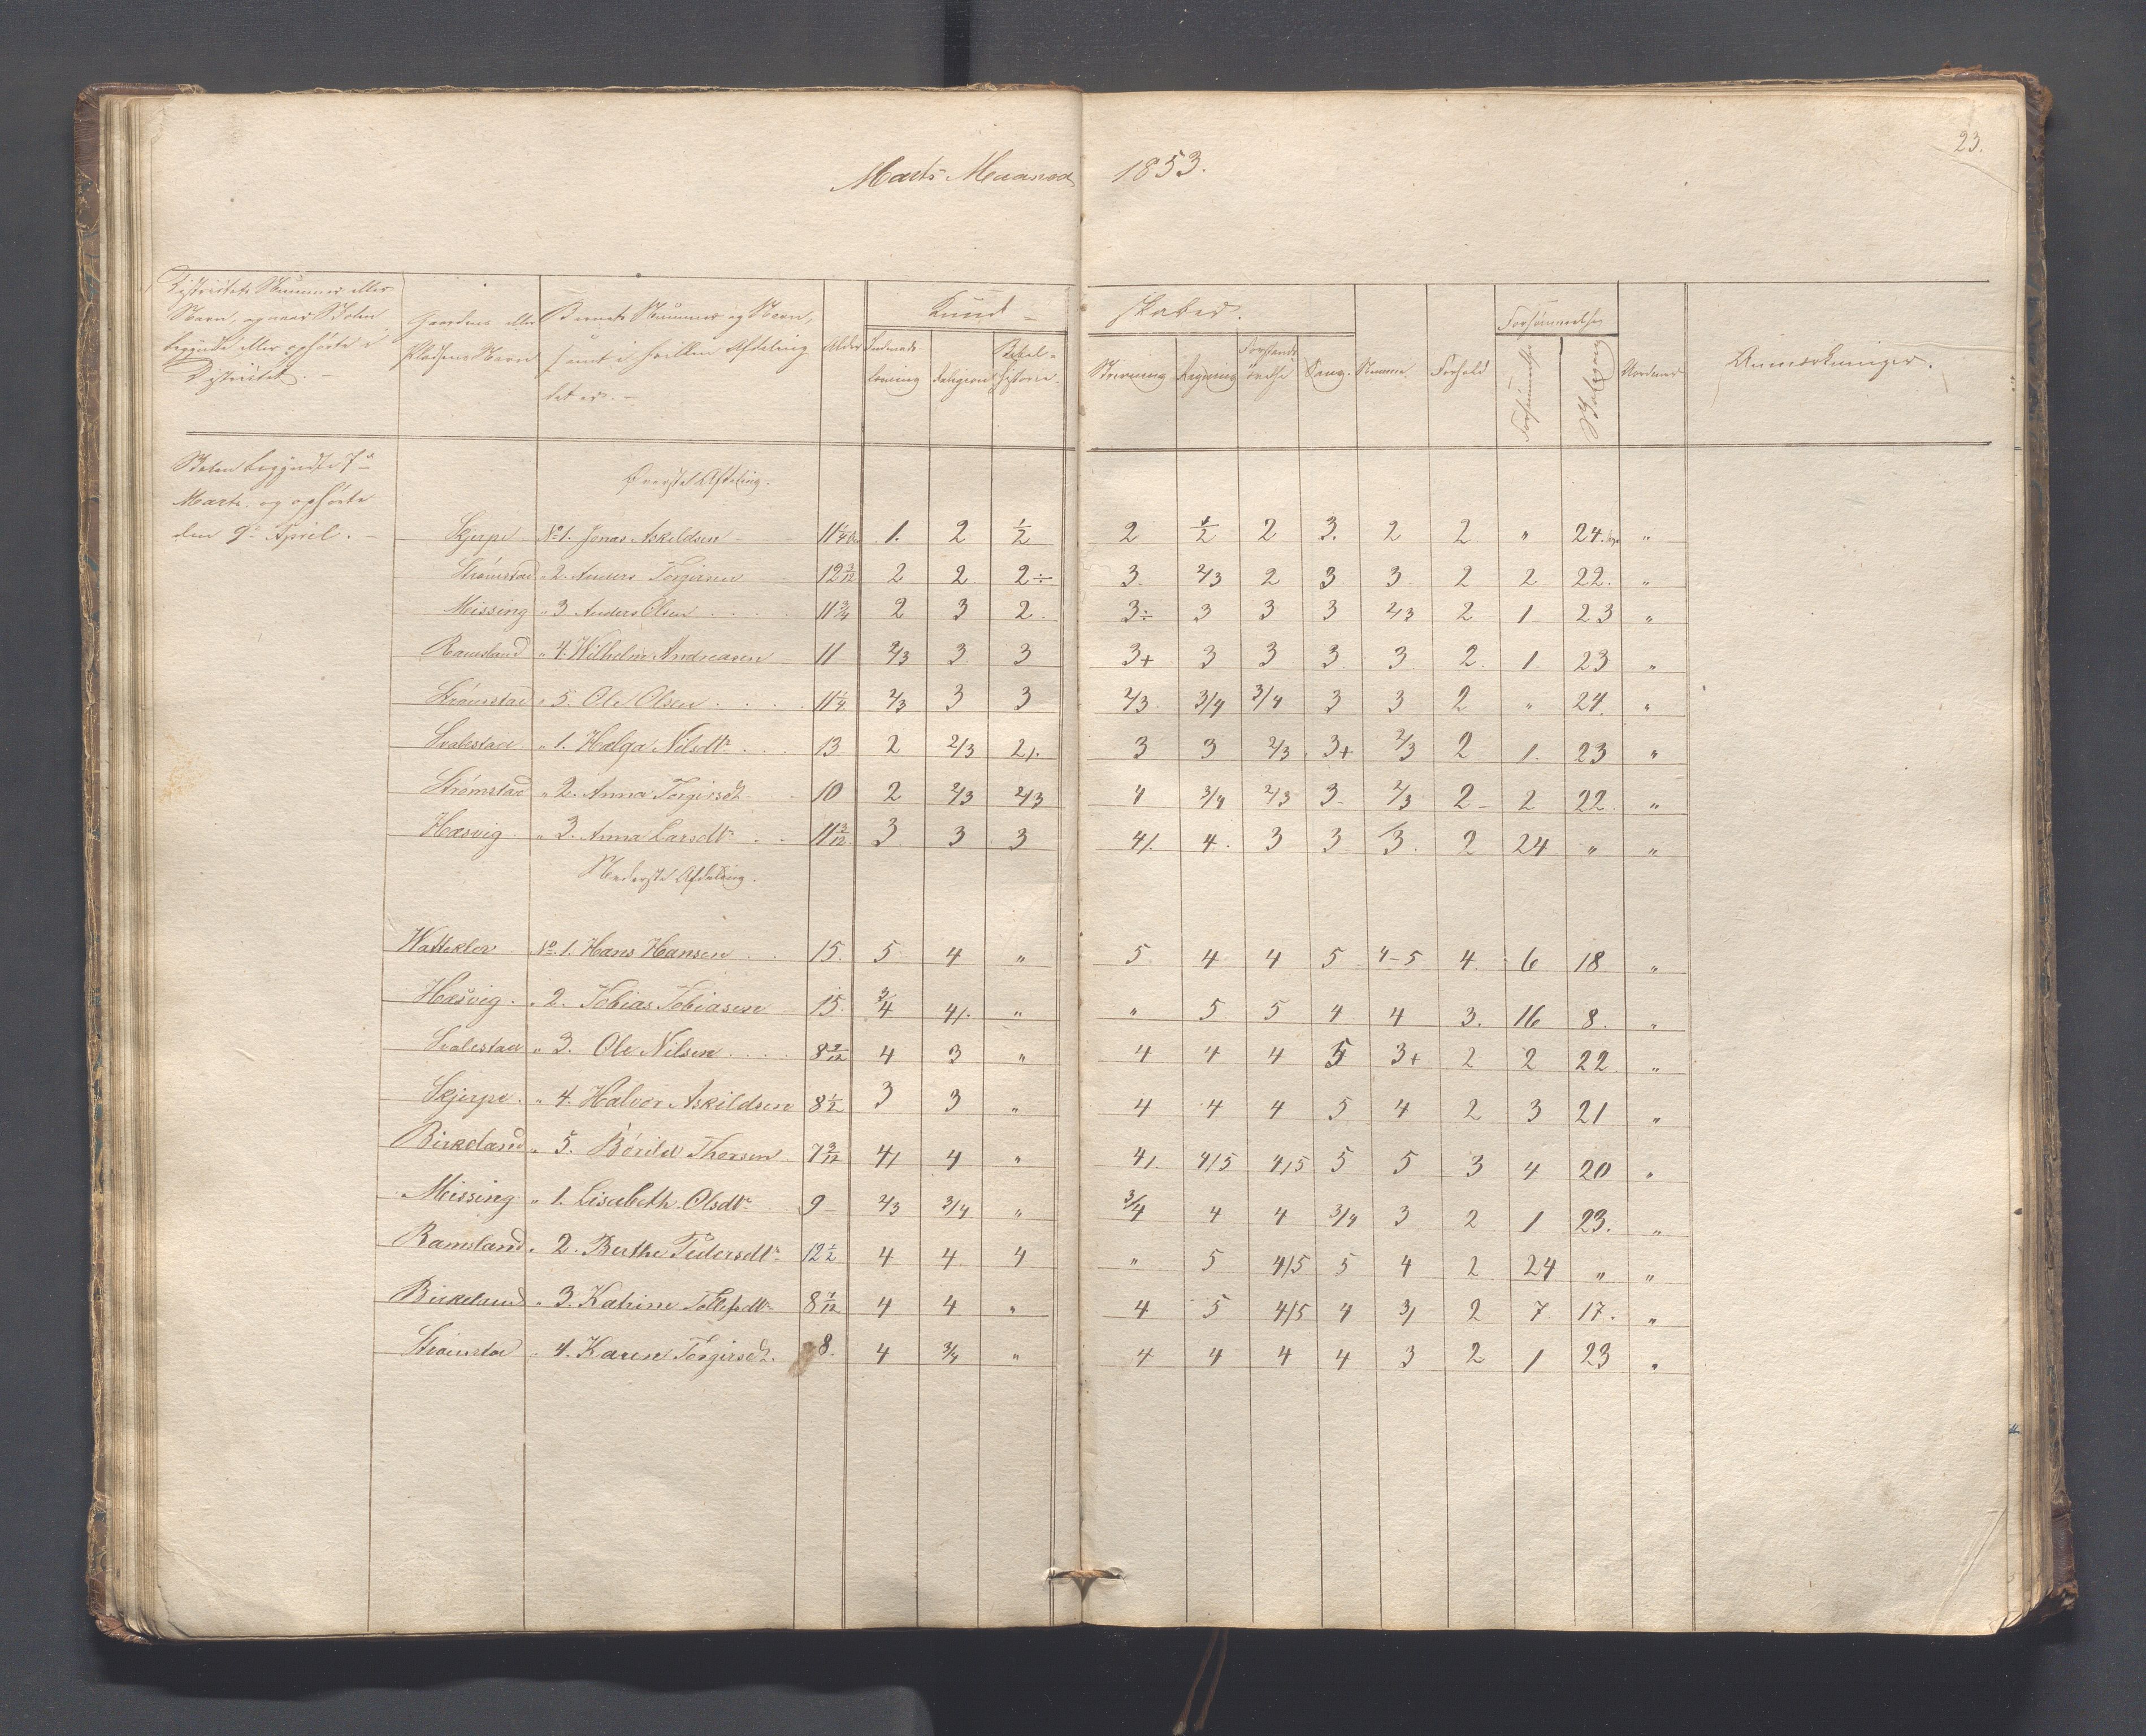 23.
Marts Maaned 1853.
Districtets Nummer eller Navn, og naar Skolen begyndte eller ophørte i Districtet. –
Gaardens eller Pladsens Navn
Barnets Nummer og Navn, samt i hvilken Afdeling det er. –
Alder
Kund – skaber.
Indenadslæsning
Religion
Bibelhistorie.
Skrivning
Regning
Sang.
Stemme.
Forhold
Forsømmelse
Anmærkninger.
Skolen begyndte 7de
Marts og ophørte
den 9de April. –
Øverste Afdeling.
Skjerpe No 1. Jonas Askeldsen 11 1/4 1. 2 1/2 2 1/2 2 3. 2 2 " 24. "
Strømstad " 2. Anders Torgirsen 12 3/12 2 2 2÷ 3. 2/3 2 3 3 2 2 22. "
Meissing " 3 Anders Olsen 11 3/4 2 3 2. 3÷ 3 3 3 2/3 2 1 23 "
Ramsland " 4. Wilhelm Andreasen 11 2/3 3 3 3+ 3 3 3 3 2 1. 23 "
Strømstad " 5. Ole Olsen 11 1/4 2/3 3 3 2/3 3/4 3/4 3 3 2 " 24. "
Svalestad " 1. Helga Nilsdtr 13 2 2/3 2/. 3 3 2/3 3+ 2/3 2 1. 23 "
Strømstad " 2. Anna Torgirsdt 10 2 2/3 2/3 4 3/4 2/3 3 2/3 2 2 22. "
Hæsvig " 3. Anna Larsdtr 11 3/12 3 3 3 4/. 4. 3 3 3. 2 24 " "
Nederste Afdeling.
Watteklev No 1. Hans Hansen 15. 5 4 " 5 4 4 5 4-5 4. 6 18 "
Hæsvig " 2. Tobias Tobiasen 15. 3/4 4/. " " 5 5 4 4 3. 16 8. "
Svalestad " 3. Ole Nilsen 8 9/12 4 3 " 4 4 4 5 3+ 2 2 22. "
Skjerpe " 4. Halvor Askildsen 8 1/2 3 3 " 4 4 4 5 4 2 3 21 "
Birkeland " 5. Børild Thorsen 7 9/12 4/ 4 " 4/. 4/5 4/5 5 5 3 4 20 "
Meissing " 1. Lisabeth Olsdtr 9 2/3 3/4 " 3/4 4 4 3/4 3 2 1 23. "
Ramsland " 2. Berthe Pedersdtr 12 1/2 4 4 4 " 5 4/5 5 4 2 24 " "
Birkeland " 3. Katrine Tollefsdtr 8 7/12 4 4 " 4 5 4/5 4 3/ 2 7 17. "
Strømstad " 4. Karen Torgirsdt. 8. 4 3/4 " 4 4 4 4 3 2 1 23 "